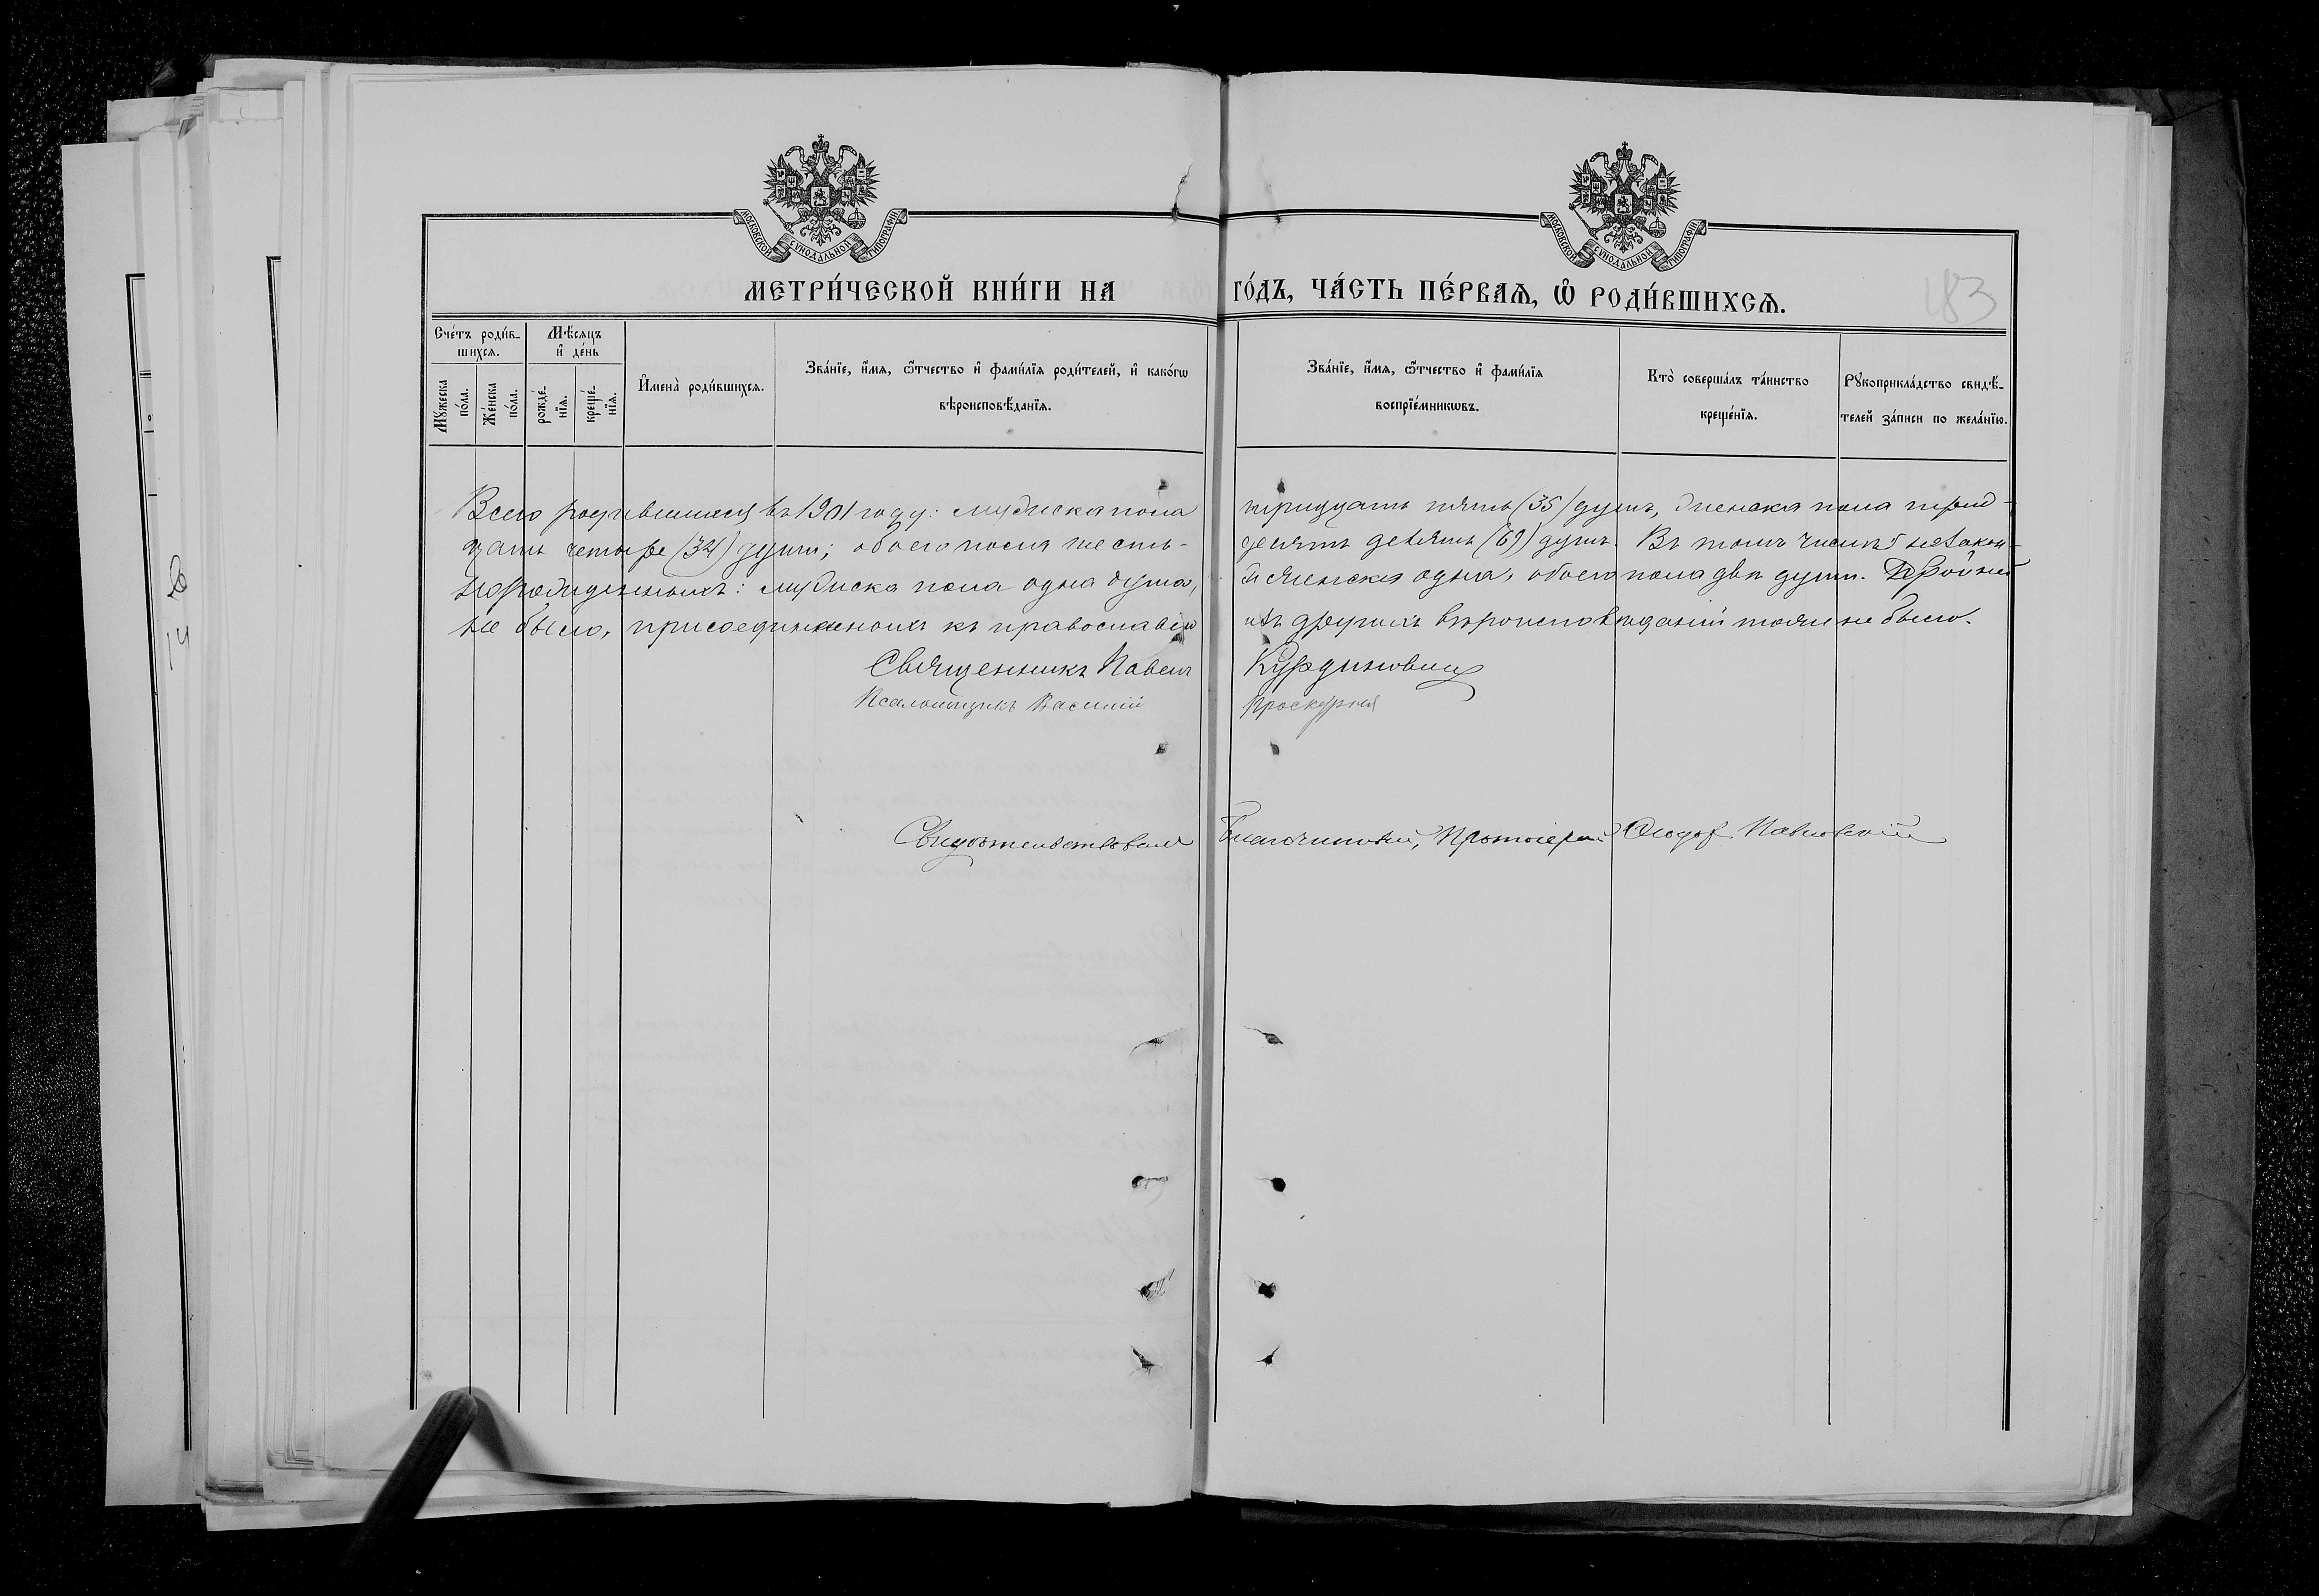 МОСКОВСКОЙ СѴНОДАЛЬНОЙ ТИПОГРАФІИ
МОСКОВСКОЙ СѴНОДАЛЬНОЙ ТИПОГРАФІИ
МЕТРИ́ЧЕСКОЙ КНИ́ГИ НА ГО́ДЪ, ЧА́СТЬ ПЕ́РВАѦ, Ѡ҆ РОДИ́ВШИХСѦ.
183
Сче́тъ роди́в-
шихсѧ.
Мꙋ́жеска по́ла.
Же́нска по́ла.
Мѣ́сѧцъ
и҆ де́нь
рожде́-
нїѧ.
креще́-
нїѧ.
И҆мена̀ роди́вшихсѧ.
Зва́нїе, и҆́мѧ, ѻ҆́тчество и҆ фами́лїѧ роди́телей, и҆ како́гѡ
вѣроисповѣ́данїѧ.
Зва́нїе, и҆́мѧ, ѻ҆́тчество и҆ фами́лїѧ
воспрїе́мникѡвъ.
Кто̀ соверша́лъ та́инство
креще́нїѧ.
Рꙋкоприкла́дство свидѣ́-
телей за́писи по жела́нїю.
Всего родившихся въ 1901 году: мужска пола тридцать пять (35) душъ, женска пола трид-
цать четыре (34) души; обоего пола шесть-десятъ девять (69) душъ. Въ томъ числѣ незакон-
норожденныхъ: мужска пола одна душа, и женска одна, обоего пола двѣ души. Двойней
не было, присоединенныхъ къ православію изъ другихъ вѣроисповѣданій тоже не было.
Священникъ Павелъ Курдиновичъ
Псаломщикъ Василій Проскурня
Свидѣтельствовалъ Благочинный, Протоіерей Ѳеодоръ Павловскій